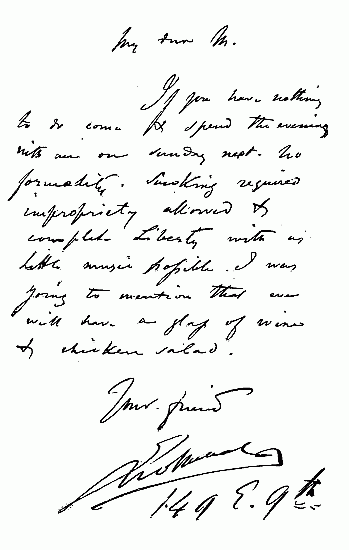 My dear M.
If you have nothing
to do come & spend the evening
with me on Sunday next. No
formality. Smoking required
impropriety allowed &
complete Liberty with as
little music possible. I was
going to mention that we
will have a glass of wine
& chicken salad.
Your friend
149 E. 9th